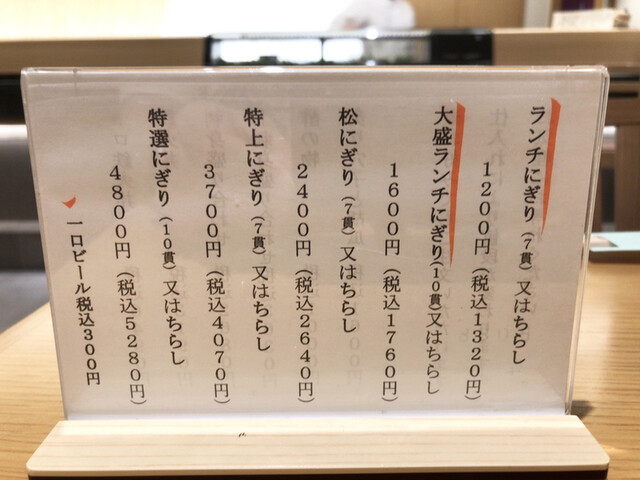 ランチにぎり(7貫)又はちらし
1200円(税込1320円)
大盛ランチにぎり(10貫)又はちらし
1600円(税込1760円)
松にぎり(7貫)又はちらし
2400円(税込2640円)
特上にぎり(7貫)又はちらし
3700円(税込4070円)
特選にぎり(10貫)又はちらし
4800円(税込5280円)
一口ビール税込300円